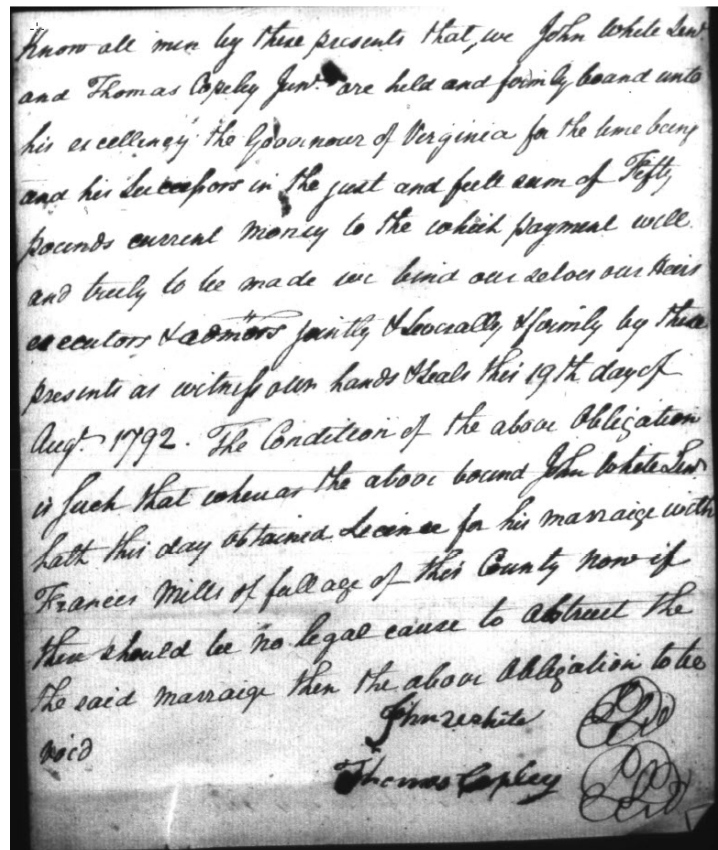 Know all men by these presents that, we John White Senr.
and Thomas Copeley Junr. are held and formly boand unto
his excellency the Govornour of Virginia for the time being
and his Successors in the just and full sum of Fifty
pounds current money to the which payment well
and truly to be made we bind our selves our Heirs
executors & admors jointly & severally & formly by these
presents as witness own hands & seals this 19th day of
Augt. 1792. The Condition of the above Obligation
is such that whereas the above bound John White Senr.
hath this day obtained Licence for his marraige with
Frances Mills of full age of this County now if
there should be no legal cause to abstruct the
the said marraige then the above Obligation to be
void
John White
Thomas Copley